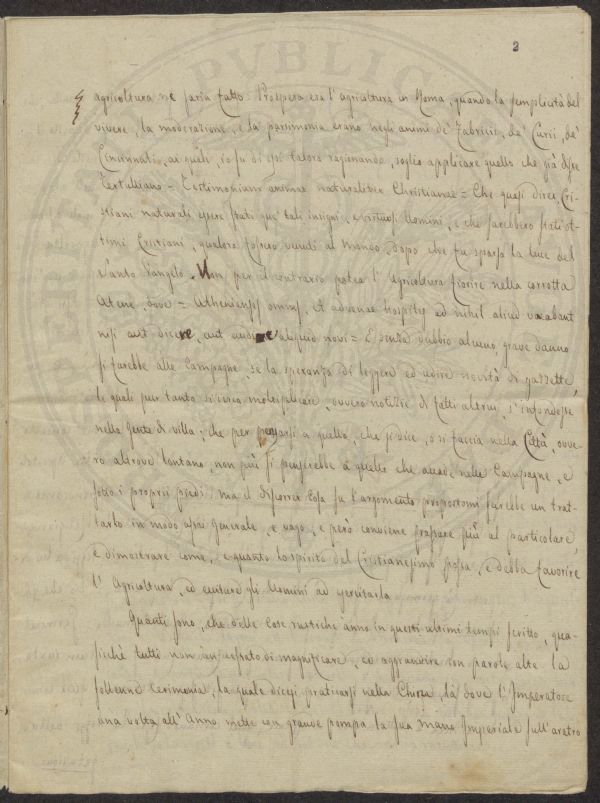 2
agricoltura ne saria tutto. Prospera era l'agricoltura in Roma, quando la semplicità del
vivere, la moderazione, e la parsimonia erano negli animi de' Fabricii, de' Curii, de'
Cincinnati, ai quali, io fu di essi talora ragionando, soglio applicare quello che già disse
Tertulliano = Testimonium animae naturaliter Christianae = Che quasi direi, Cri-
stiani naturali essere stati que' tali insigni, e virtuosi Uomini, e che sarebbero stati ot-
timi Cristiani, qualora fossero venuti al mondo, dopo che fu sparsa la luce del
Santo Vangelo. Non per il contrario potea l'Agricoltura fiorire nella corrotta
Atene, dove = Athenienses omnes, et advenae hospites ad nihil aliud vacabant
nisi aut dicere, aut audire aliquid novi = E senza dubbio alcuno, grave danno
si farebbe alle Campagne, se la speranza di leggere ed udire novità di gazzette,
le quali pur tanto si cerca moltiplicare, ovvero notizie di fatti altrui, s'infondesse
nella gente di villa; che per pensarsi a quello, che si dice, o si faccia nella Città, ovve-
ro altrove lontano, non più si penserebbe a quello che accade nelle Campagne, e
sotto i proprii piedi. ma il discorrer così su l'argomento propostomi sarebbe un trat-
tarlo in modo assai generale, e vago, e però conviene passare più al particolare,
e dimostrare come, e quanto lo spirito del Cristianesimo possa, e debba favorire
l'Agricoltura, ed eccitare gli Uomini ad esercitarla.
Quanti sono, che delle cose rustiche ànno in questi ultimi tempi scritto, qua-
sichè tutti non àn cessato di magnificare, ed aggrandire con parole alte la
solenne Cerimonia, la quale dicesi praticarsi nella China, là dove l'Imperatore
una volta all'Anno mette con grande pompa la sua mano Imperiale sull'aratro